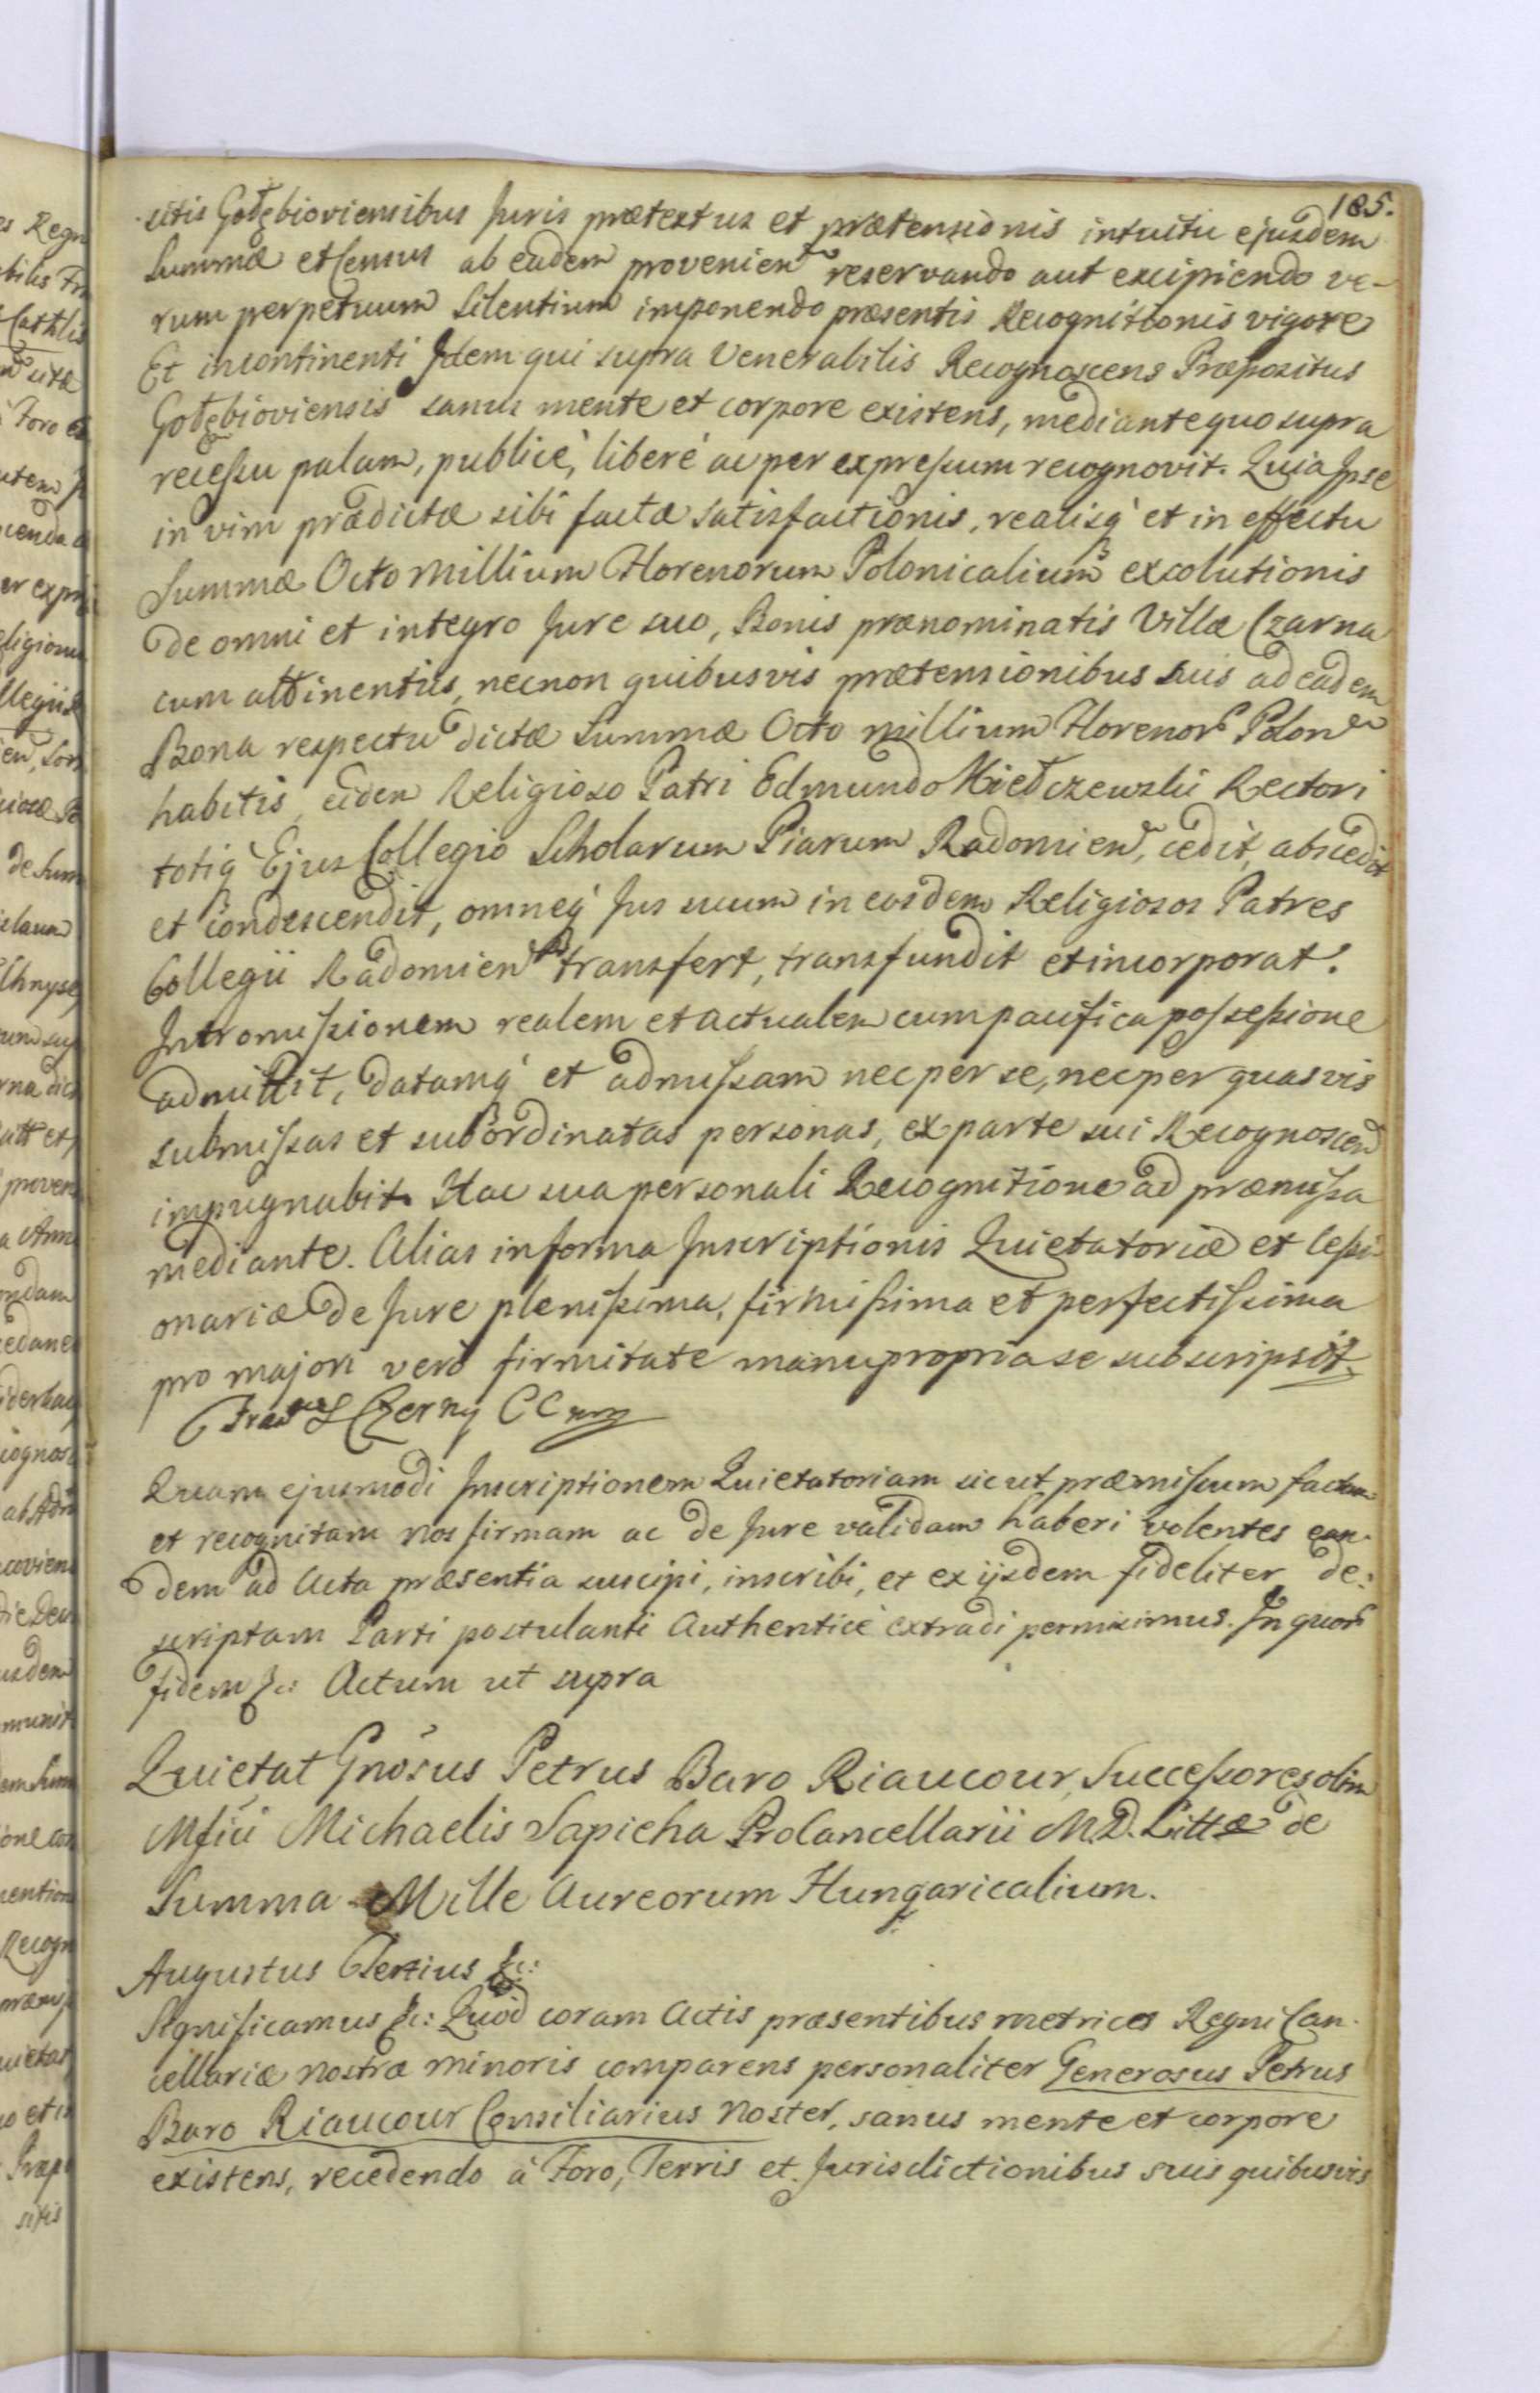 185.
sitis Gołębioviensibus Juris prætextus et prætensionis intuitu ejusdem
Summæ et Census ab eadem provenien reservando aut excipiendo ve-
rum perpetuum Silentium imponendo præsentis Recognitionis vigore
Et incontinenti Idem qui supra Venerabilis Recognoscens Præpositus
Gołębioviensis sanus mente et corpore existens, mediante quo supra
recessu palam, publicè, liberè ac per expressum recognovit. Quia Ipse
in vim prædictæ sibi factæ Satisfactionis, realisq́ et in effectu
Summæ Octo Millium Florenorum Polonicalium exolutionis
de omni et integro Jure suo, Bonis prænominatis Villæ Czarna
cum attinentiis, necnon quibusvis prætensionibus suis ad eadem
Bona respectu dictæ Summæ Octo millium Florenor Polon
habitis eidem Religioso Patri Edmundo Kiełczewski Rectori
totiq́ Ejus Collegio Scholarum Piarum Radomien, cedit, abscedit
et condescendit, omneq́ Jus suum in eosdem Religiosos Patres
Collegii Radomien transfert, transfundit et incorporat.
Intromissionem realem et actualem cum pacifica possessione
admittit, datamq́ et admissam nec per se, nec per quasvis
submissas et subordinatas personas, ex parte sui Recognoscen
impugnabit. Hac sua personali Recognitione ad præmissa
mediante. Alias in forma Inscriptionis Quietatoriæ et Cessi-
onariæ de Jure plenissima, firmissima et perfectissima
pro majori verò firmitate manu propria se subscripsit.
Czerny CC mp
Quam ejusmodi Inscriptionem Quietatoriam sicut præmissum factam
et recognitam nos firmam ac de Jure validam haberi volentes ean-
dem ad Acta præsentia suscipi, inscribi, et ex ijsdem fideliter de:
scriptam Parti postulanti Authenticè extradi permisimus. In quor
fidem &c: Actum ut supra
Quietat Gnosus Petrus Baro Riaucour, Successores olim
Mfici Michaelis Sapieha Procancellarii M. D. Littæ de
Summa Mille Aureorum Hungaricalium.
Augustus Tertius &c:
Significamus &c: Quod coram Actis præsentibus metrices Regni Can-
cellariæ nostræ minoris comparens personaliter Generosus Petrus
Baro Riaucour Consiliarius Noster, sanus mente et corpore
existens, recedendo à Foro, Terris et Jurisdictionibus suis quibusvis